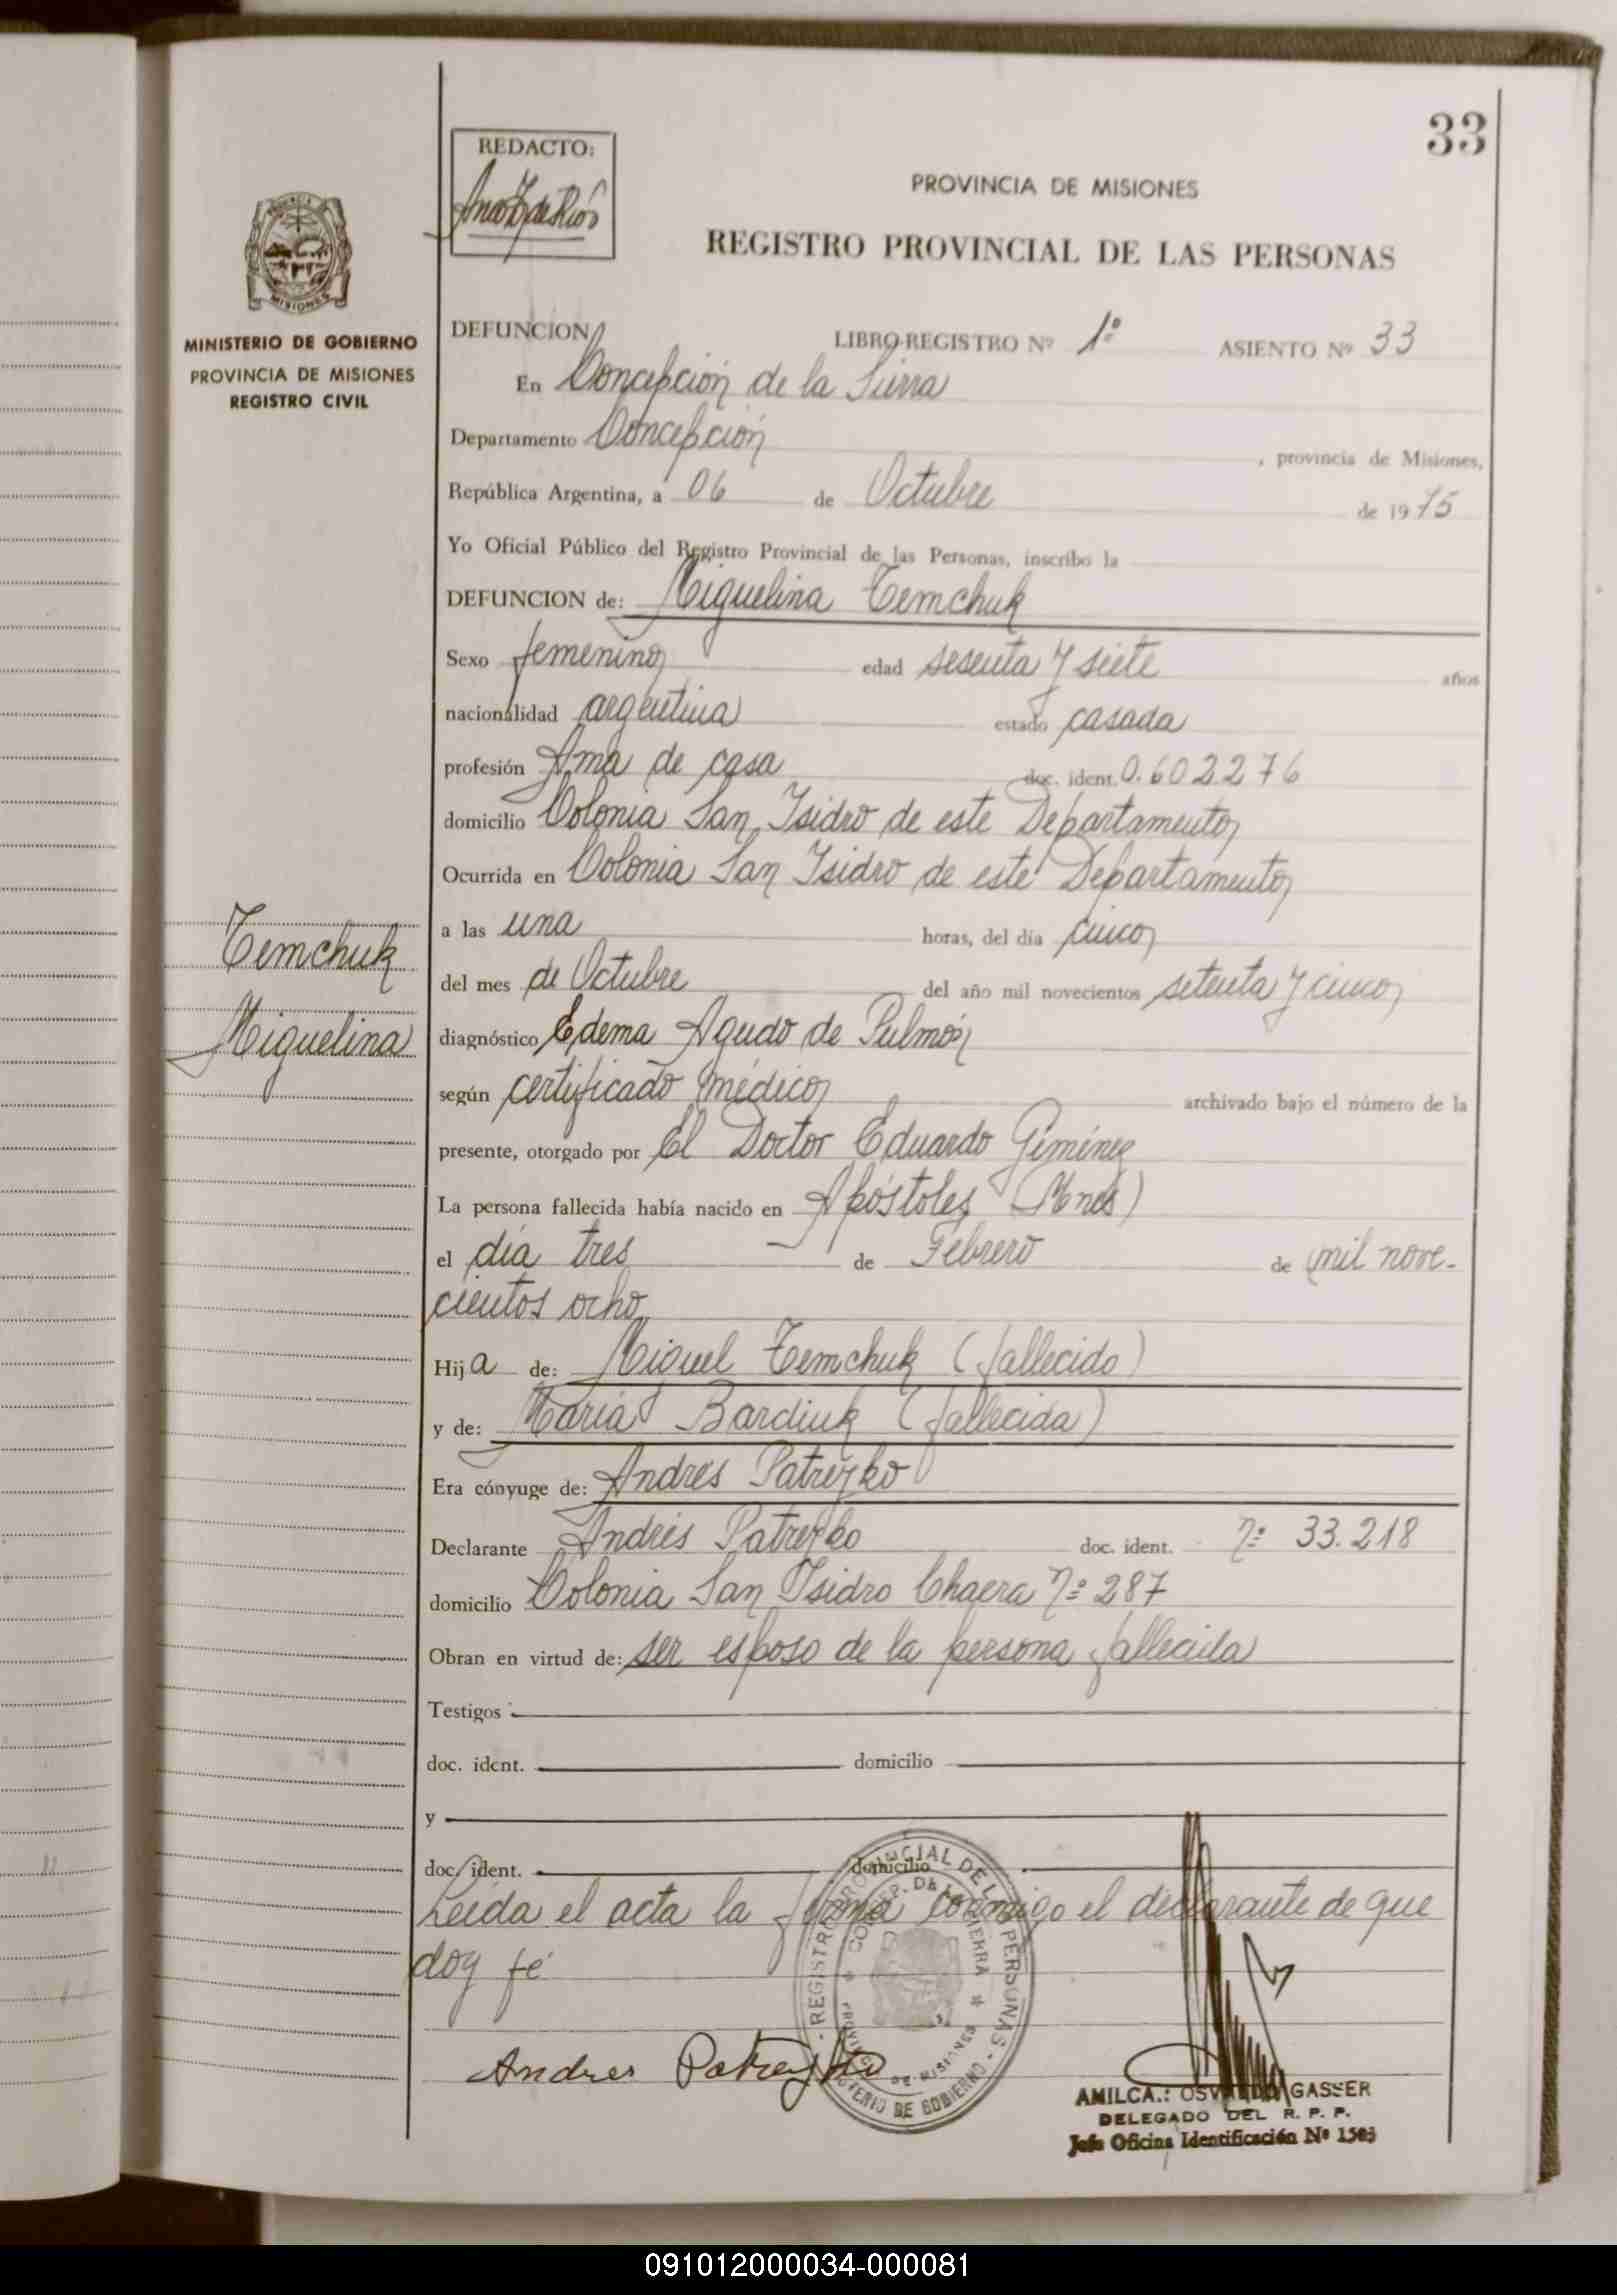 33
REDACTO:
PROVINCIA DE MISIONES
REGISTRO PROVINCIAL DE LAS PERSONAS
MISIONES
MINISTERIO DE GOBIERNO
PROVINCIA DE MISIONES
REGISTRO CIVIL
DEFUNCION LIBRO-REGISTRO Nº 1º ASIENTO Nº 33
En Concepción de la Sierra
Departamento Concepción, provincia de Misiones,
República Argentina, a 06 de Octubre de 1975
Yo Oficial Público del Registro Provincial de las Personas, inscribo la
DEFUNCION de: Miguelina Temchuk
Sexo femenino edad sesenta y siete años
nacionalidad argentina estado casada
profesión Ama de casa doc. ident. 0.602276
domicilio Colonia San Isidro de este Departamento
Ocurrida en Colonia San Isidro de este Departamento
a las una horas, del día cinco
Temchuk
Miguelina
del mes de Octubre del año mil novecientos setenta y cinco
diagnóstico Edema Agudo de Pulmón
según certificado médico archivado bajo el número de la
presente, otorgado por El Doctor Eduardo Giménez
La persona fallecida había nacido en Apóstoles (Mnes)
el día tres de Febrero de mil nove-
cientos ocho
Hija de: Miguel Temchuk (fallecido)
y de: María Bardiuk (fallecida)
Era cónyuge de: Andrés Patreyko
Declarante Andrés Patreyko doc. ident. nº 33.218
domicilio Colonia San Isidro Chacra nº 287
Obran en virtud de: ser esposo de la persona fallecida
Testigos
doc. ident. domicilio
y
doc. ident. domicilio
Leída el acta la firma conmigo el declarante de que
doy fé
REGISTRO PROVINCIAL DE LAS PERSONAS
PROVINCIA DE MISIONES
MINISTERIO DE GOBIERNO
Andres Patreyko
AMILCA.: OSVALDO GASSER
DELEGADO DEL R. P. P.
Jefe Oficina Identificación Nº 1503
091012000034-000081